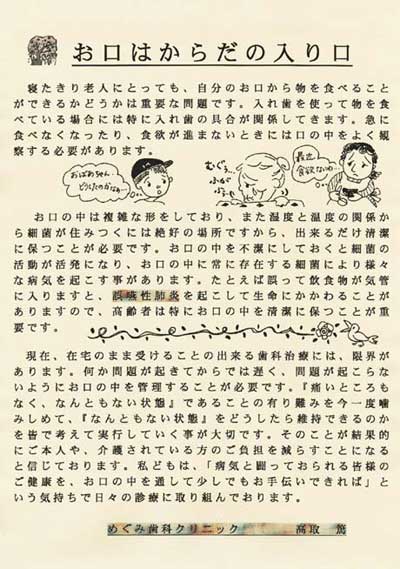 お口はからだの入り口
寝たきり老人にとっても、自分のお口から物を食べること
ができるかどうかは重要な問題です。入れ歯を使って物を食
べている場合には特に入れ歯の具合が関係してきます。急に
食べなくなったり、食欲が進まないときには口の中をよく観
察する必要があります。
おばあちゃん
どうしたのかなぁ
むぐぅ…
ふが
最近
食欲ないわ
お口の中は複雑な形をしており、また湿度と温度の関係か
ら細菌が住みつくには絶好の場所ですから、出来るだけ清潔
に保つことが必要です。お口の中を不潔にしておくと細菌の
活動が活発になり、お口の中に常に存在する細菌により様々
な病気を起こす事があります。たとえば誤って飲食物が気管
に入りますと、誤嚥性肺炎を起こして生命にかかわることが
ありますので、高齢者は特にお口の中を清潔に保つことが重
要です。
現在、在宅のまま受けることの出来る歯科治療には、限界が
あります。何か問題が起きてからでは遅く、問題が起こらな
いようにお口の中を管理することが必要です。『痛いところも
なく、なんともない状態』であることの有り難みを今一度噛
みしめて、『なんともない状態』をどうしたら維持できるのか
を皆で考えて実行していく事が大切です。そのことが結果的
にご本人や、介護されている方のご負担を減らすことになる
と信じております。私どもは、「病気と闘っておられる皆様の
ご健康を、お口の中を通して少しでもお手伝いできれば」と
いう気持ちで日々の診療に取り組んでおります。
めぐみ歯科クリニック 高取 篤